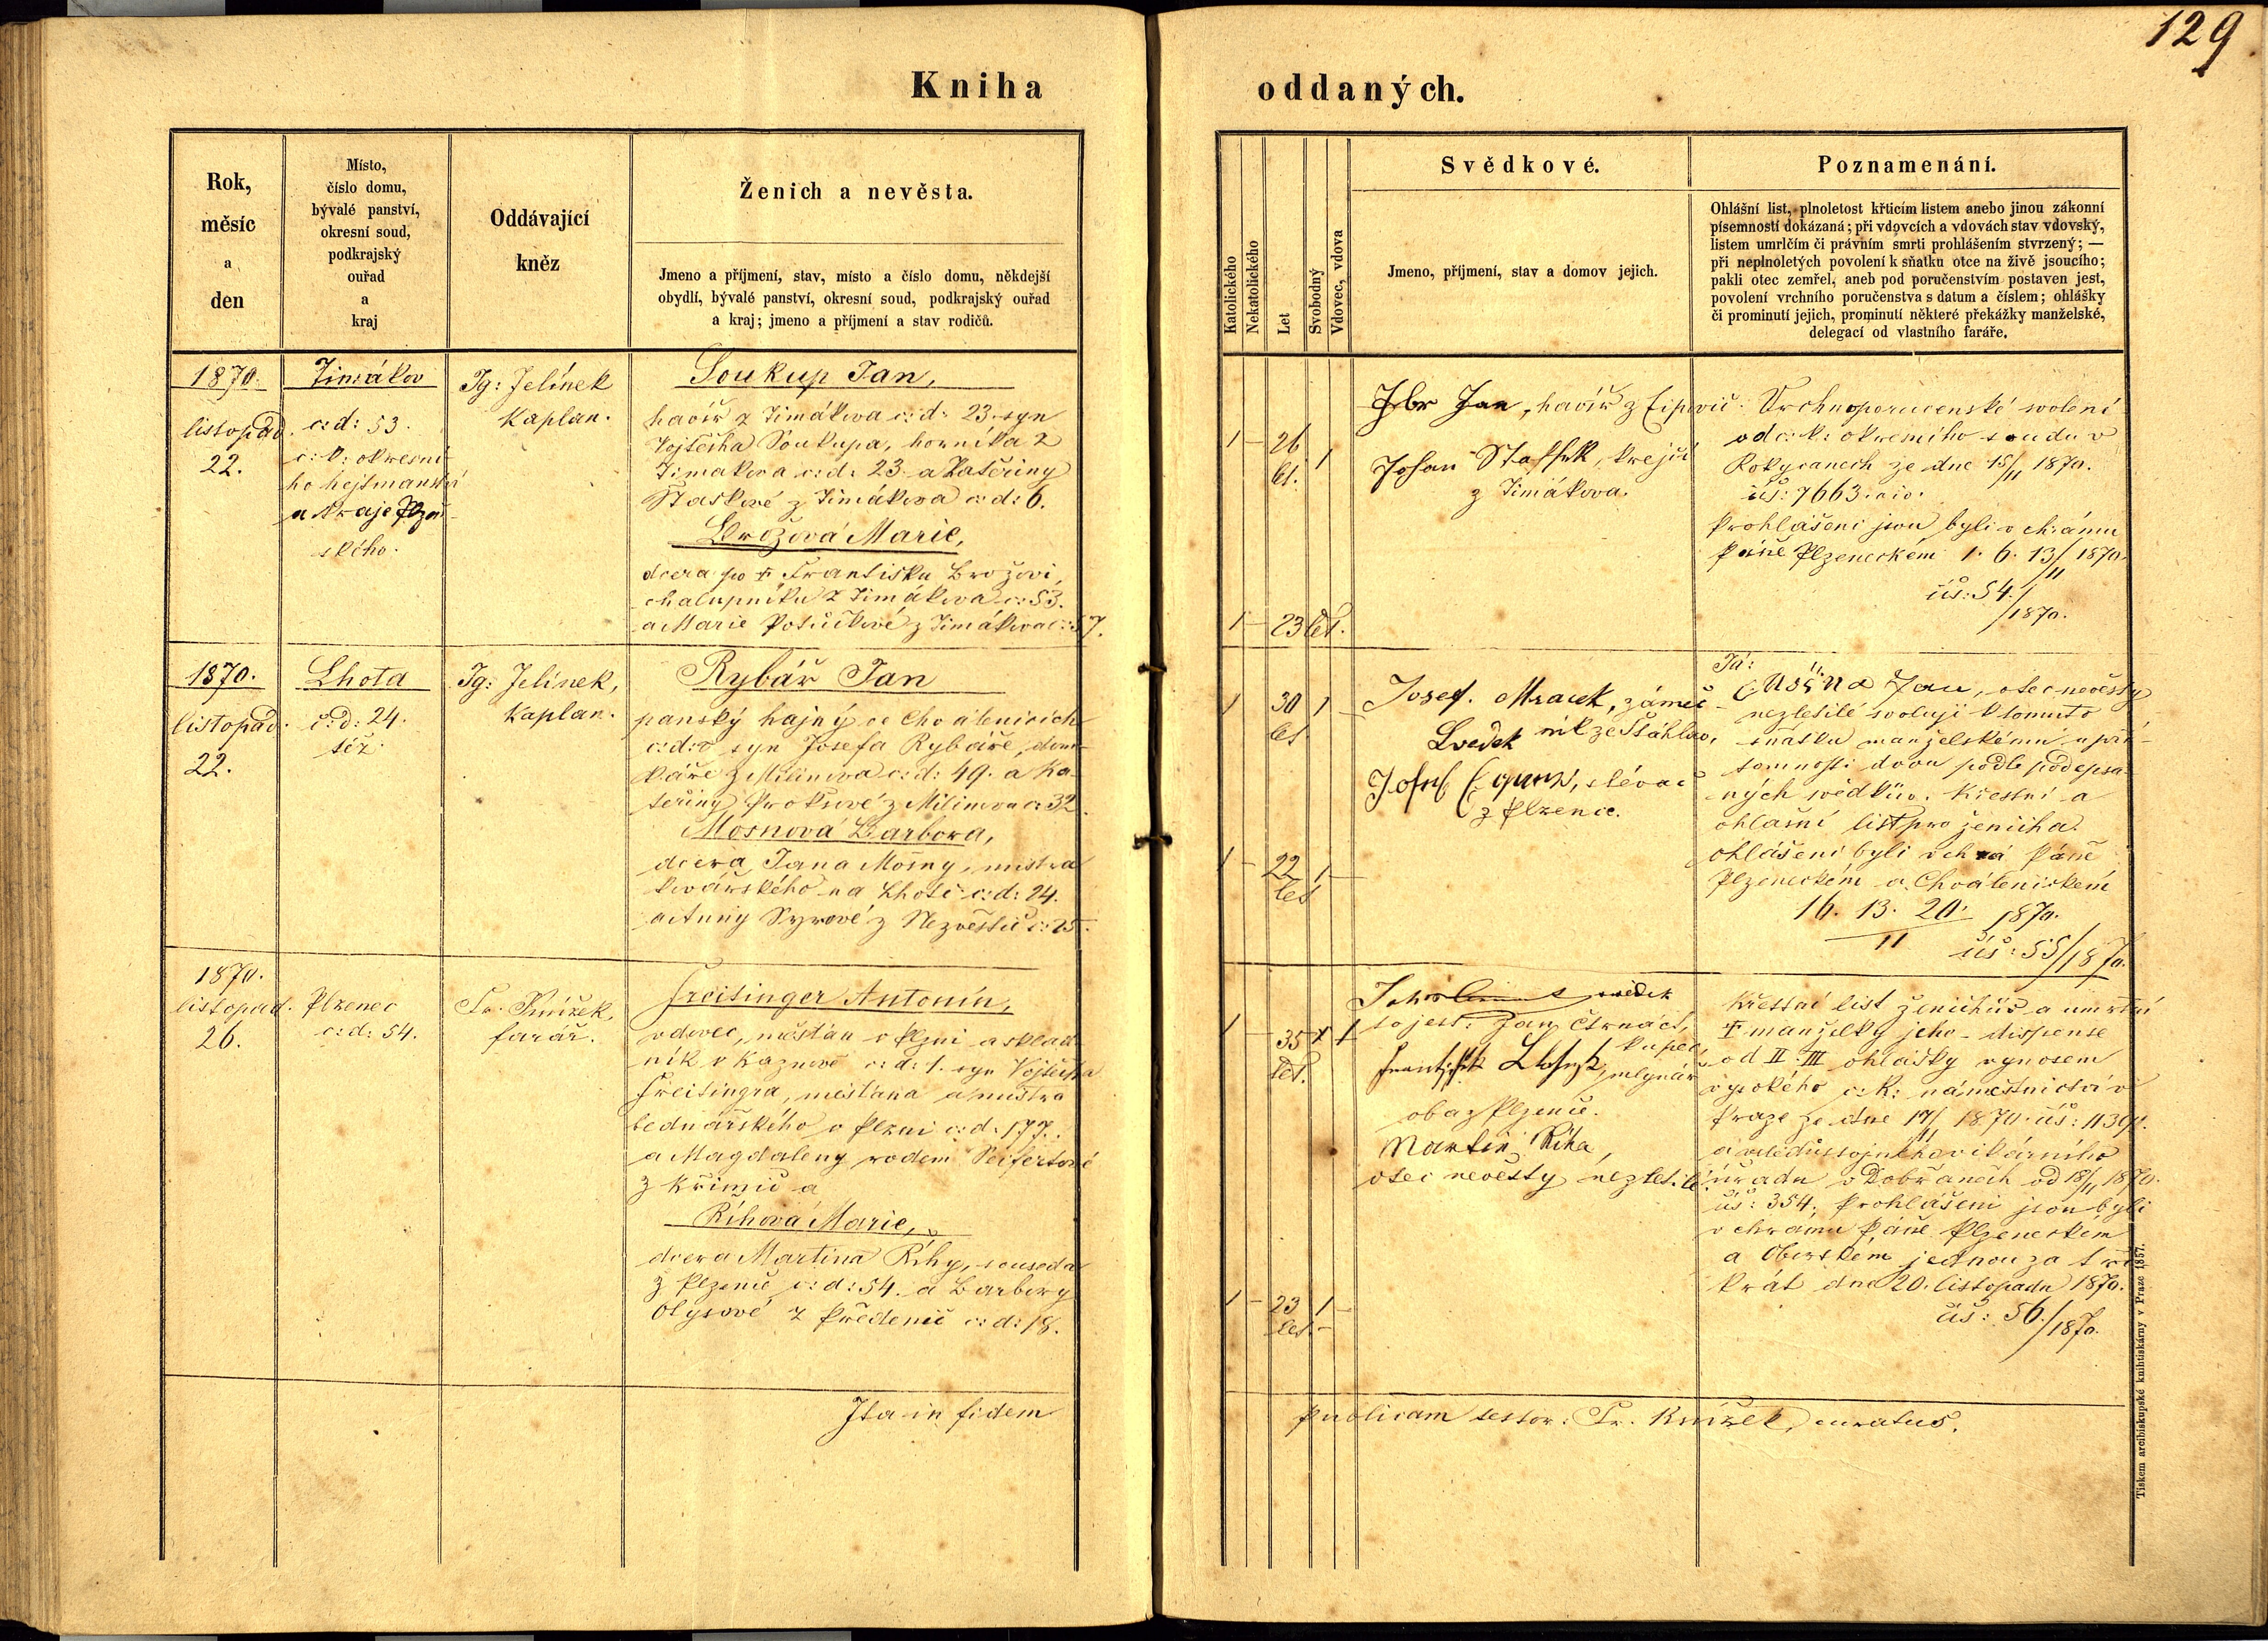 129
Kniha
oddaných.
Rok,
měsíc
a
den
Místo,
číslo domu,
bývalé panství,
okresní soud,
podkrajský
ouřad
a
kraj
Oddávající
kněz
Ženich a nevěsta.
Jmeno a příjmení, stav, místo a číslo domu, někdejší
obydlí, bývalé panství, okresní soud, podkrajský ouřad
a kraj; jmeno a příjmení a stav rodičů.
Katolického
Nekatolického
Let
Svobodný
Vdovec, vdova
Svědkové.
Jmeno, příjmení, stav a domov jejich.
Poznamenání.
Ohlášní list, plnoletost křticím listem anebo jinou zákonní
písemností dokázaná; při vdovcích a vdovách stav vdovský,
listem umrlčím či právním smrti prohlášením stvrzený; —
při neplnoletých povolení k sňatku otce na živě jsoucího;
pakli otec zemřel, aneb pod poručenstvím postaven jest,
povolení vrchního poručenstva s datum a číslem; ohlášky
či prominutí jejich, prominutí některé překážky manželské,
delegací od vlastního faráře.
1870.
listopad.
22.
Timákov
c: d: 53.
c: k: okresní-
ho hejtmanství
a kraje Plzeň-
ského.
Ig: Jelínek
Kaplan.
Soukup Jan,
havíř z Timákova c: d: 23. syn
Vojtěcha Soukupa, horníka z
Timakova c: d: 23. a Kateřiny
Staskové z Timákova c: d: 6.
Brožová Marie,
dcera po † Františku Brožovi,
chalupníku z Timákova c: 53.
a Marie Potůčkové z Timákova c: 57.
1
26
let.
1
1 23 let.
Jan, havíř z
krejčí
z Timákova.
Vrchnoporučenské svolení
od c: k: okresního soudu v
Rokycanech ze dne 15/11 1870.
čís: 7663.
Prohlášeni jsou byli v chrámu
Páně Plzeneckém 1. 6. 13/11 1870.
čís: 54./1870.
1870.
listopad.
22.
Lhota
č: d: 24.
též.
Ig: Jelínek,
Kaplan.
Rybář Jan
panský hajný ve Chválenicích
syn Josefa Rybáře, dom-
káře z Milinova c: d: 49. a Ka-
teřiny Prokšové z Milinova c: 32.
Mosnová Barbora,
dcera Jana Mosny, mistra
kovářského na Lhotě c: d: 24.
a Anny Syrové z Nezvěstic c: 25.
1 30 1
let
1 22 1
let
Josef. Mracek, zámeč-
Svedek ník ze Šťáhlav,
slévač
z Plzence.
Já:
Jan, otec nevěsty
nezletilé svoluji k tomuto
sňatku manželskému u pří-
tomnosti dvou podle podepsa-
ných svědkův. Křestní a
ohlašní list pro ženicha.
ohlášeni byli v chrá Páně
Plzeneckém a Chválenickém
16. 13. 20. 1870.
11
čís: 55/1870.
1870.
listopad.
26.
Plzenec
c: d: 54.
Fr. Knížek,
farář.
Freitinger Antonín,
vdovec, měšťan v Plzni a sklad-
ník v Kaznově c: d: 1. syn Vojtěcha
Freitingra, měšťana a mistra
bednářského v Plzni c: d: 177.
a Magdaleny rodem Seifertové
z Křimic a
Říhová Marie,
dcera Martina Říhy, souseda
z Plzence c: d: 54. a Barbory
Olysové z Předenic c: d: 18.
1 35 1
let.
1 23 1
let.
svědek
to jest: Jan Čtrnáct,
kupec
František mlynář
oba z Plzence.
Martin Říha,
otec nevěsty nezletilé.
Křestní list ženichův a umrtní
† manželky jeho - dispense
od II. III ohlášky vynosem
vysokého c: k: náměstnictví v
Praze ze dne 17/11 1870.
vikárního
úřadu v Dobřanech od 18/11 1870.
čís: 354. Prohlášeni jsou byli
v chrámu Páně Plzeneckém
a jednou za tři-
krát dne 20. listopadu 1870.
čís: 56./1870.
Ita in fidem
publicam testor: Fr. Knížek, curatus.
Tiskem arcibiskupské knihtiskárny v Praze 1857.